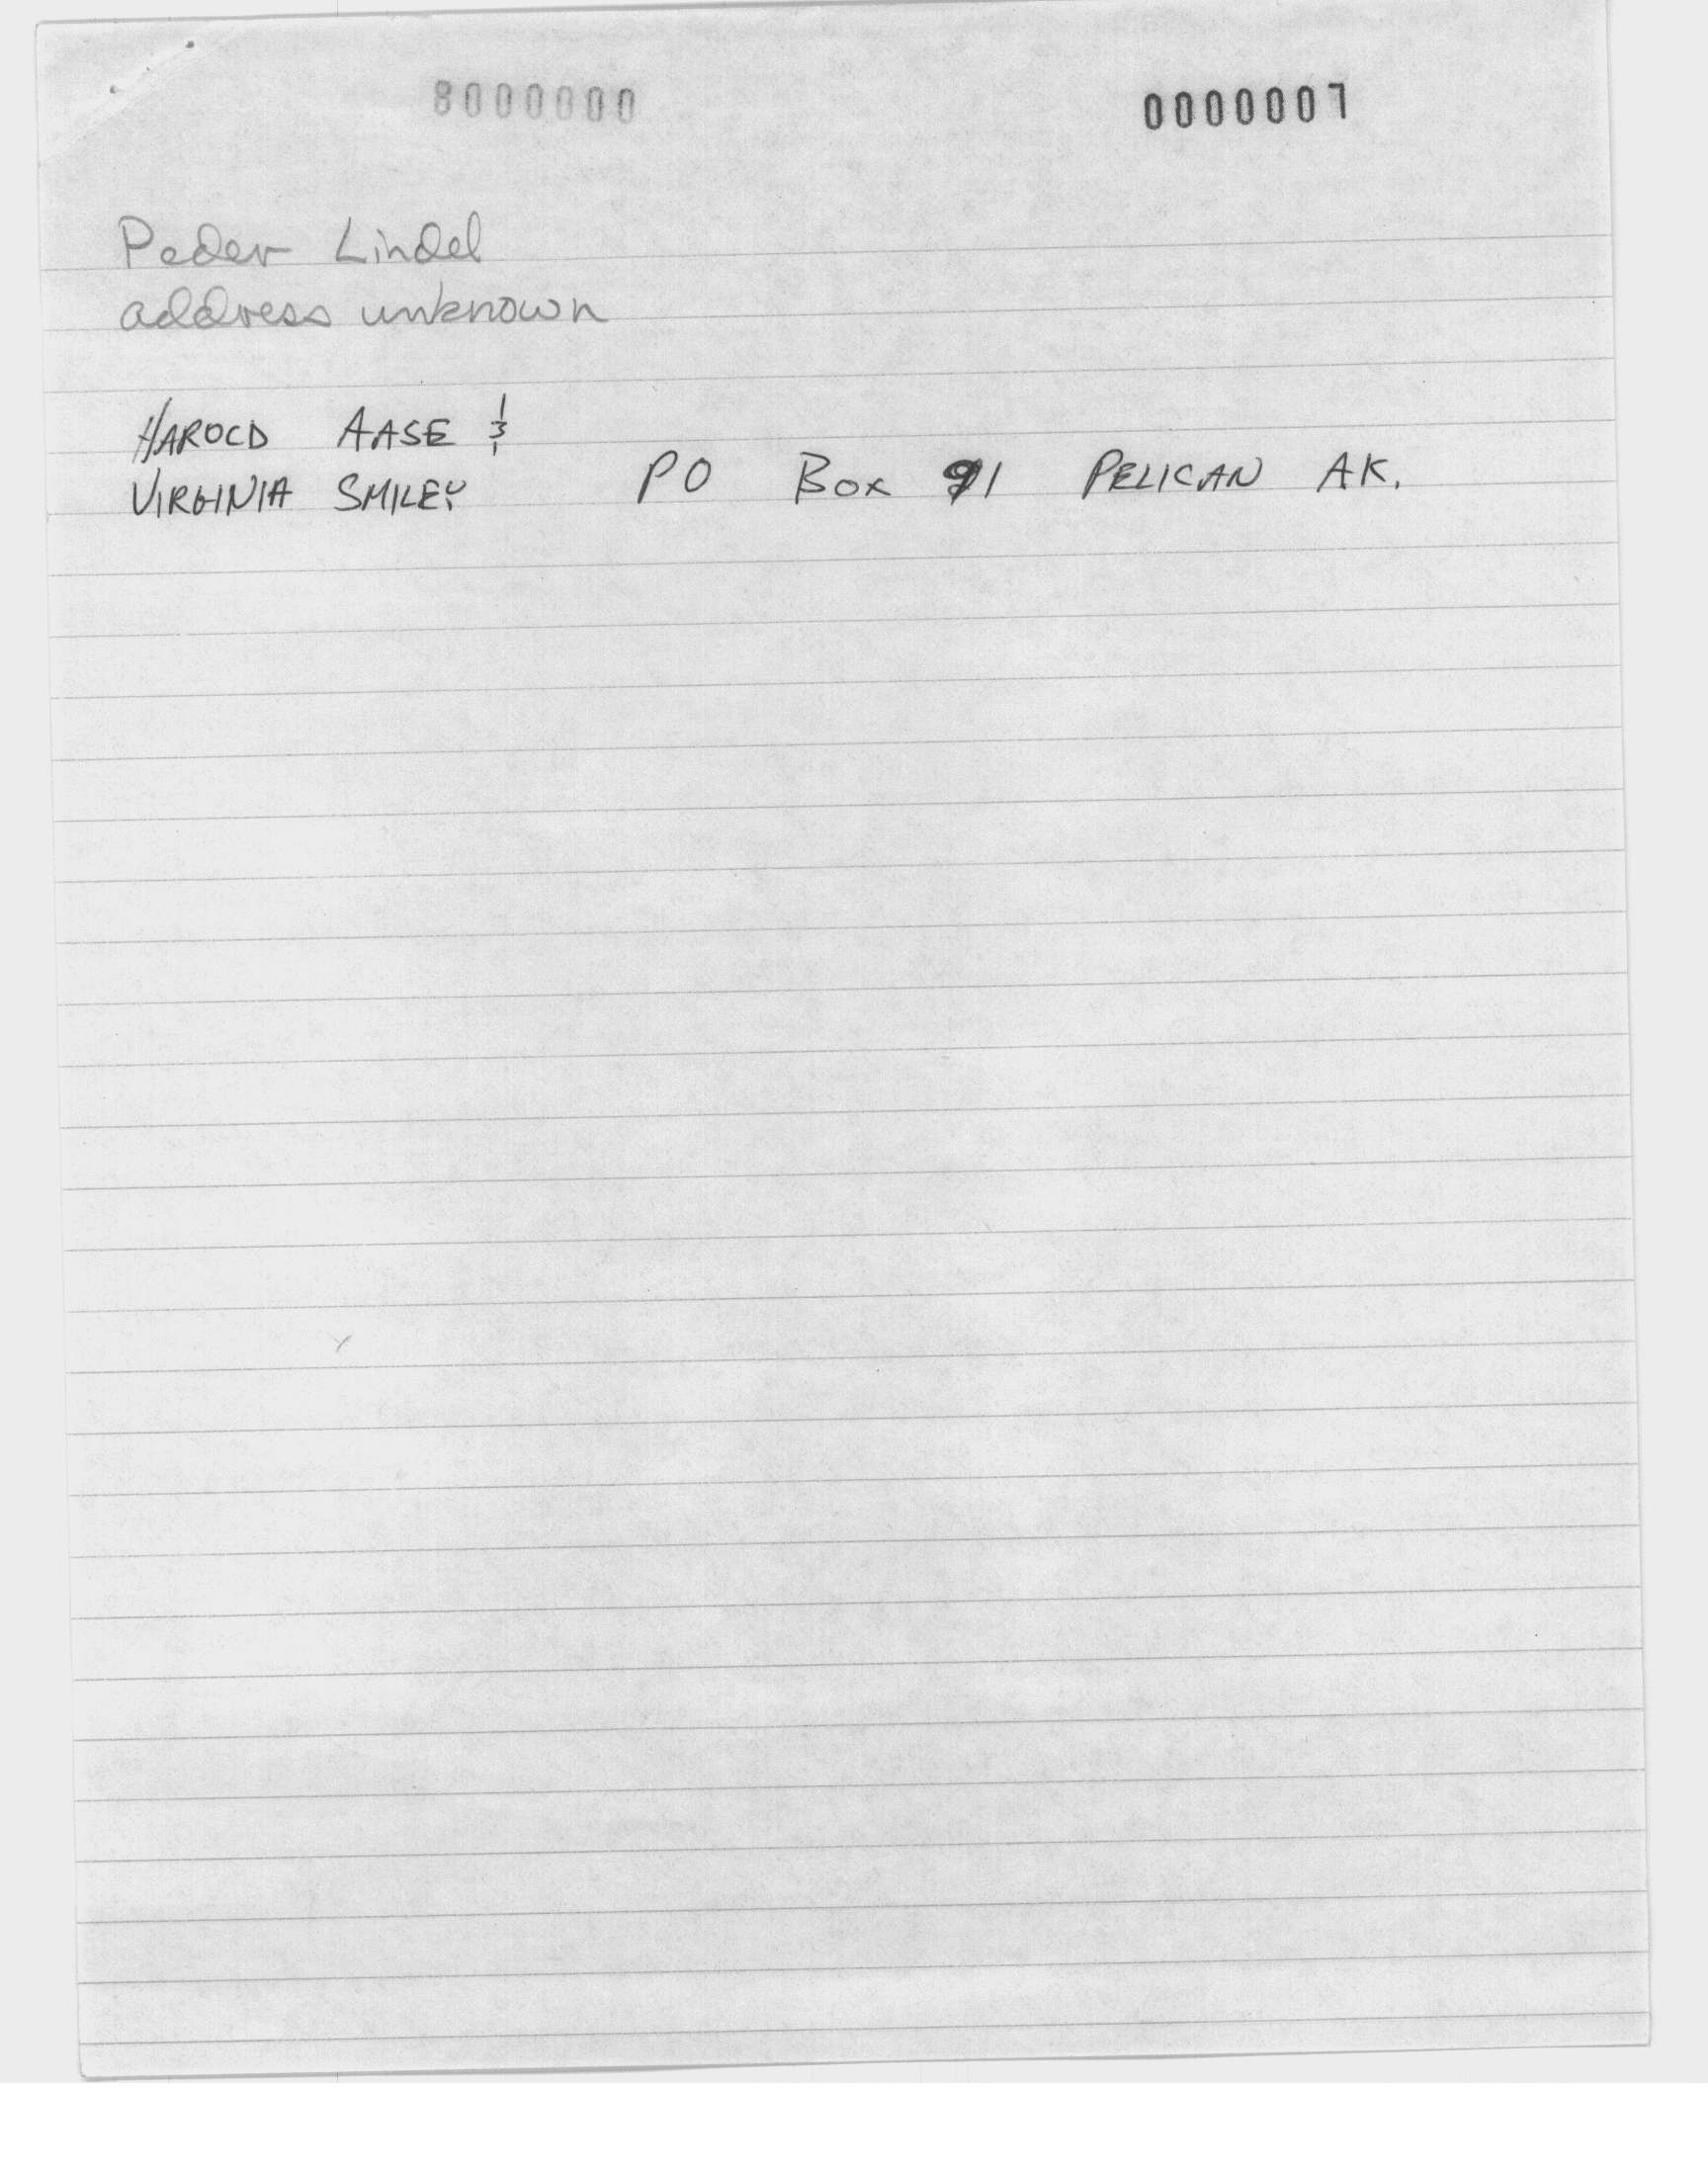 8000000 0000007
Peder Lindel
address unknown
HAROLD AASE &
VIRGINIA SMILEY PO BOX 91 PELICAN AK.